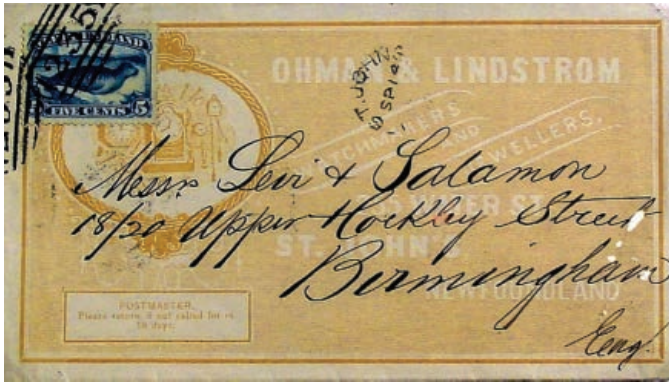 NEWFOUNDLAND
FIVE CENTS 5
235
OHMAN & LINDSTROM
ST. JOHN'S
SP 14
WATCHMAKERS
AND
JEWELLERS,
WATER ST.
ST. JOHN'S
NEWFOUNDLAND
Messrs Levi & Salamon
18/20 Upper Hockley Street
Birmingham
Eng.
POSTMASTER,
Please return, if not called for in
10 days.